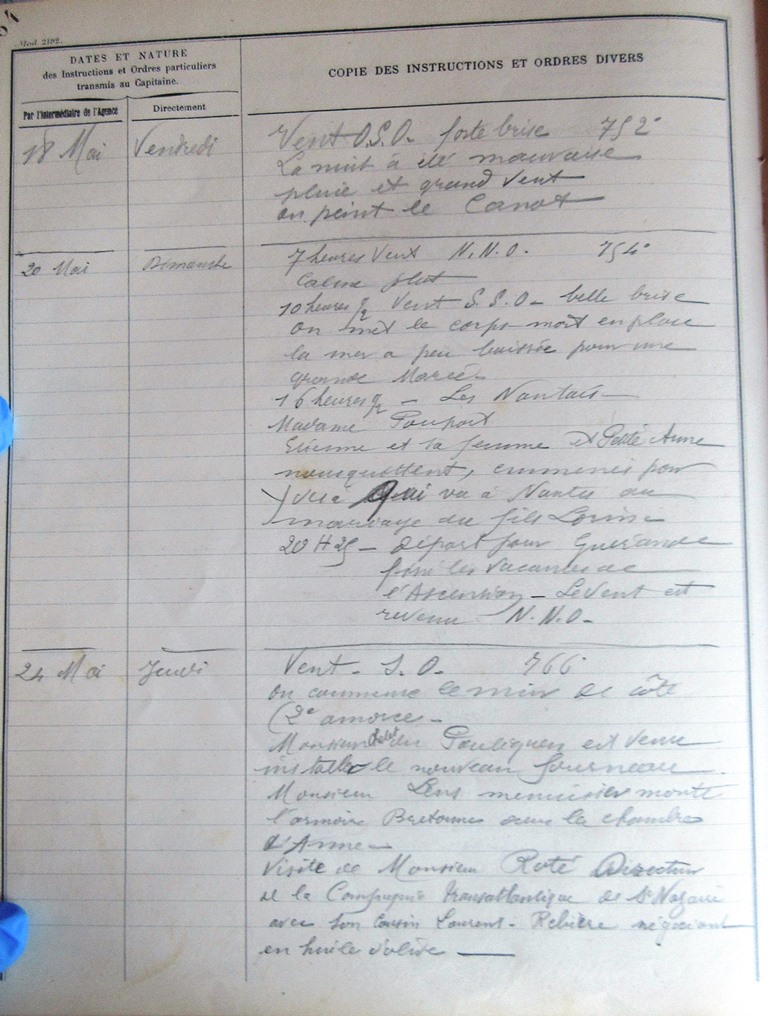 Mod. 2192.
DATES ET NATURE
des Instructions et Ordres particuliers
transmis au Capitaine.
COPIE DES INSTRUCTIONS ET ORDRES DIVERS
Par l'Intermédiaire de l'Agence
Directement
18 Mai Vendredi Vent O.S.O. forte brise 752°
La nuit a été mauvaise
pluie et grand vent
on peint le Canot
20 Mai Dimanche 7 heures Vent N.N.O. 754°
Calme plat
10 heures ½ Vent S.S.O - belle brise
on met le corps mort en place
la mer a peu baissée pour une
grande Marée
16 heures ½ - Les Nantais
Madame Poupart
Etienne et sa femme et Petite Anne
nous quittent, emmenés par
qui va à Nantes au
mariage du fils
20 H 25 - départ pour Guérande
fini les vacances de
l'Ascension - Le Vent est
revenu N.N.O -
24 Mai Jeudi Vent - S.O. 766
on commence le mur de côté
(2e amorce -
Monsieur du Pouliguen est venu
installer le nouveau fourneau
Monsieur menuisier monte
l'armoire Bretonne dans la chambre
d'Anne -
Visite de Monsieur Roté Directeur
de la Compagnie transatlantique de St Nazaire
avec son cousin Laurent - Rebière négociant
en huile d'olive -